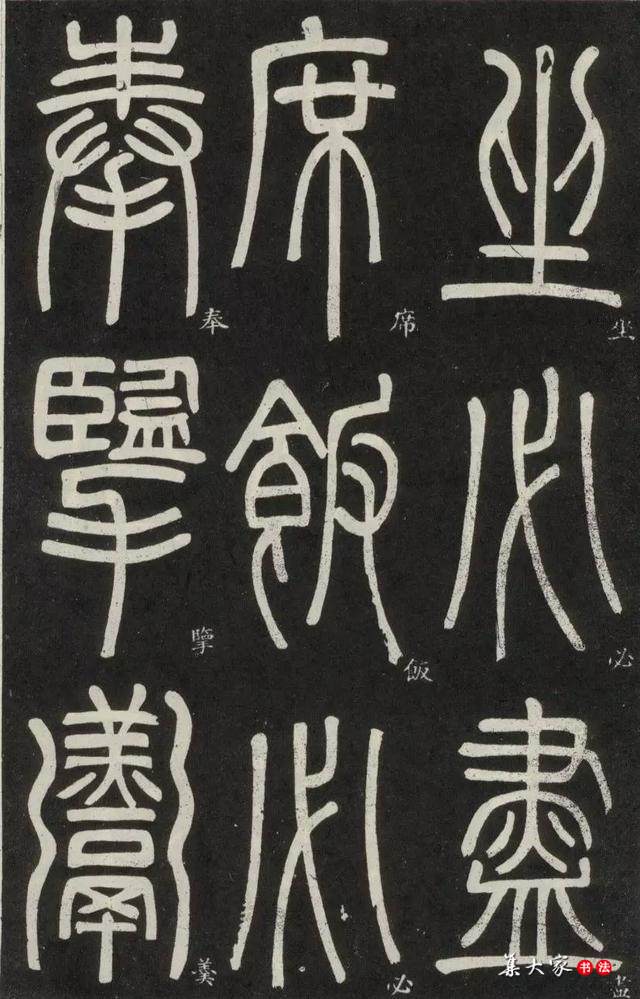 坐必盡
坐
必
席飯必
席
飯
必
奉擥羹
奉
擥
羹
集大家书法